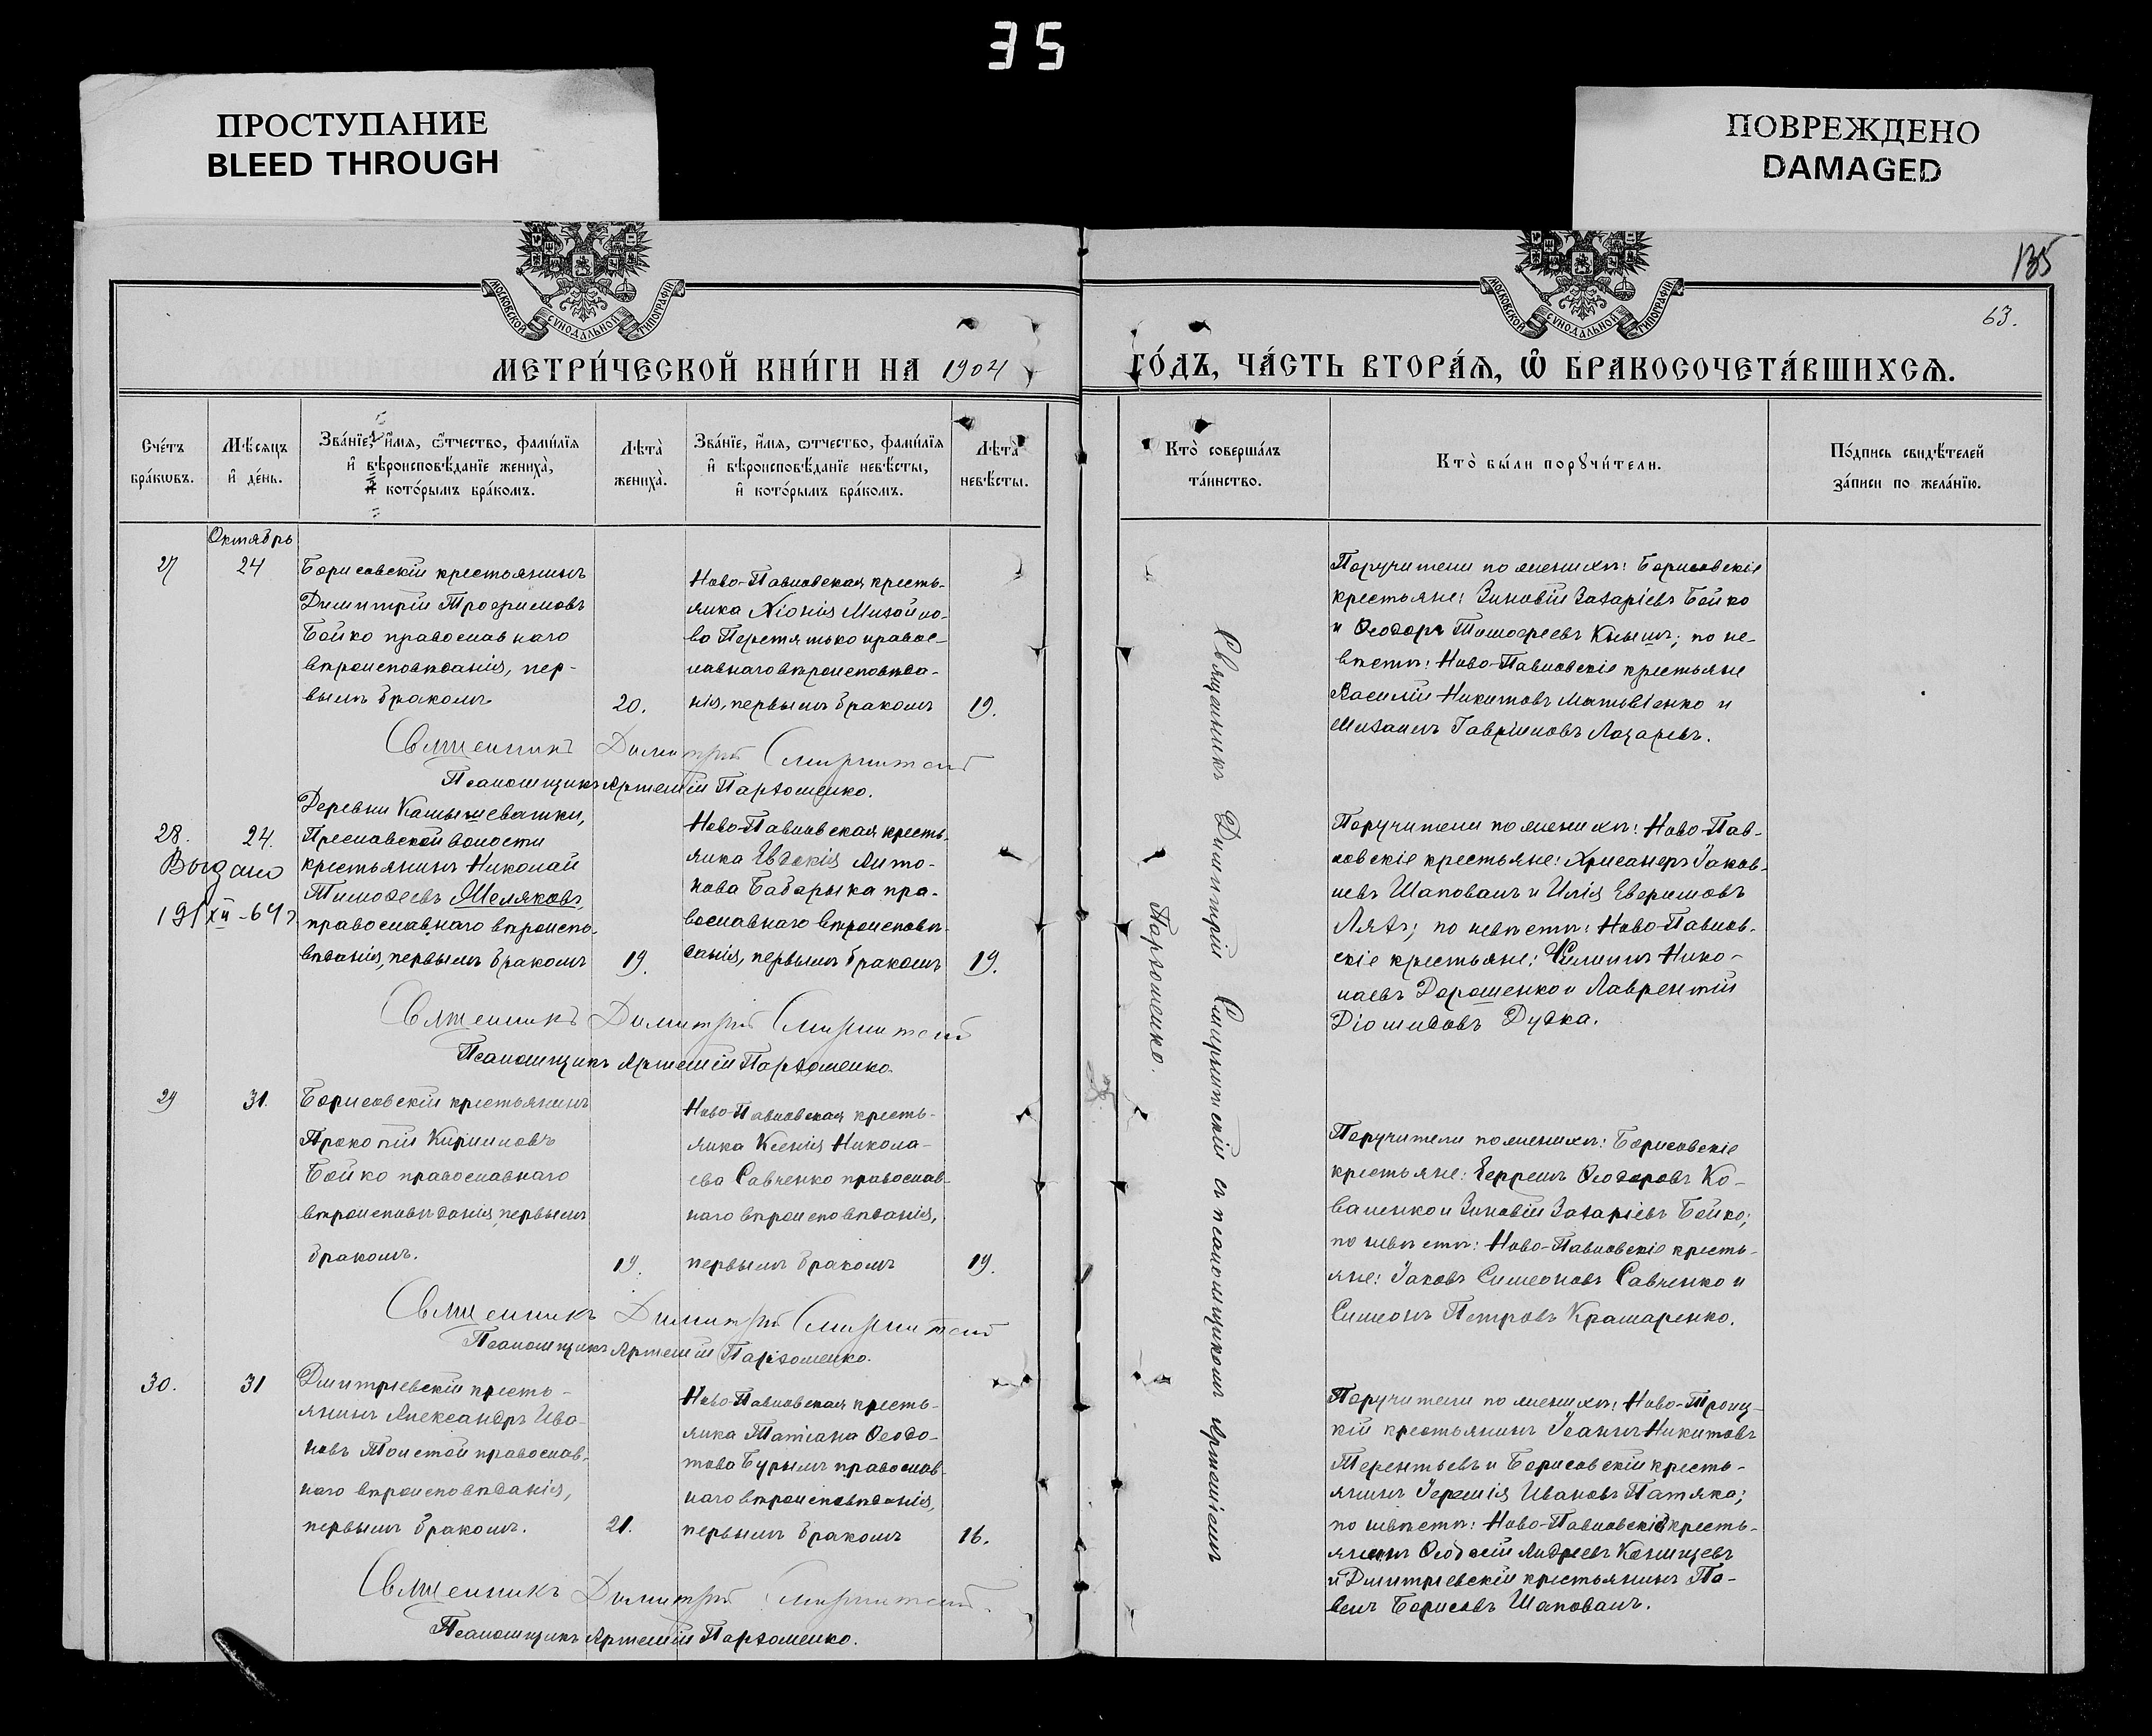 35
ПРОСТУПАНИЕ
BLEED THROUGH
ПОВРЕЖДЕНО
DAMAGED
135
63.
МОСКОВСКОЙ СУНОДАЛЬНОЙ ТИПОГРАФІИ
МОСКОВСКОЙ СУНОДАЛЬНОЙ ТИПОГРАФІИ
МЕТРИ́ЧЕСКОЙ КНИ́ГИ НА 1904 ГО́ДЪ, ЧА́СТЬ ВТОРА́Я, Ѽ БРАКОСОЧЕТА́ВШИХСЯ.
Сче́тъ
бра́кѡвъ.
Мѣ́сяцъ
и҆ де́нь.
Зва́нїе, и҆́мя, ѻ҆́тчество, фами́лїя
и҆ вѣроисповѣ́данїе жениха̀,
и҆ кото́рымъ бра́комъ.
Лѣ́та
жениха̀.
Зва́нїе, и҆́мя, ѻтчество, фами́лїя
и҆ вѣроисповѣ́данїе невѣ́сты,
и҆ кото́рымъ бра́комъ.
Лѣ́та
невѣ́сты.
Кто̀ соверша́лъ
та́инство.
Кто̀ бы́ли порꙋчи́тели.
По́дпись свидѣ́телей
за́писи по жела́нїю.
Октябрь
27
24
Борисовскій крестьянинъ
Димитрій Трофимовъ
Бойко православнаго
вѣроисповѣданія, пер-
вымъ бракомъ
20.
Ново-Павловская кресть-
янка Хіонія Михайло-
ва Перетятько правос-
лавнаго вѣроисповѣда-
нія, первымъ бракомъ
19.
Поручители по женихѣ: Борисовскіе
крестьяне: Зиновій Захаріевъ Бойко
и Ѳеодоръ Тимофеевъ Книшъ; по не-
вѣстѣ: Ново-Павловскіе крестьяне
Василій Никитовъ Матвіенко и
Михаилъ Гавриловъ Лазаревъ.
Священникъ Димитрій
Псаломщикъ Артемій Пархоменко.
28.
24.
Выдано
19/XII-64 г.
Деревни Камышеватки,
Преславской волости
крестьянинъ Николай
Тимофеевъ Меляковъ,
православнаго вѣроиспо-
вѣданія, первымъ бракомъ
19.
Ново-Павловская кресть-
янка Евдокія Анто-
нова Бабарыка пра-
вославнаго вѣроисповѣ-
данія, первымъ бракомъ
19.
Поручители по женихѣ: Ново-Пав-
ловскіе крестьяне: Хрисанфъ Іаков-
левъ Шаповалъ и Илія Евфимовъ
Ляхъ; по невѣстѣ: Ново-Павлов-
скіе крестьяне: Филиппъ Нико-
лаевъ Дорошенко и Лаврентій
Діомидовъ Дудка.
Священникъ Димитрій
Псаломщикъ Артемій Пархоменко.
29
31.
Борисовскій крестьянинъ
Прокопій Кирилловъ
Бойко православнаго
вѣроисповѣданія, первымъ
бракомъ.
19.
Ново-Павловская кресть-
янка Ксенія Никола-
ева Савченко православ-
наго вѣроисповѣданія,
первымъ бракомъ
19.
Поручители по женихѣ: Борисовскіе
крестьяне: Ефремъ Ѳеодоровъ Ко-
валенко и Зиновій Захаріевъ Бойко;
по невѣстѣ: Ново-Павловскіе кресть-
яне: Іаковъ Симеоновъ Савченко и
Симеонъ Петровъ Крамаренко.
Священникъ Димитрій
Псаломщикъ Артемій Пархоменко.
30.
31
Дмитріевскій кресть-
янинъ Александръ Ива-
новъ Толстой православ-
наго вѣроисповѣданія,
первымъ бракомъ.
21.
Ново-Павловская кресть-
янка Татіана Ѳеодо-
това Бурымъ православ-
наго вѣроисповѣданія,
первымъ бракомъ
16.
Поручители по женихѣ: Ново-Троиц-
кій крестьянинъ Іоаннъ Никитовъ
Терентьевъ и Борисовскій кресть-
янинъ Іеремія Ивановъ Патяка;
по невѣстѣ: Ново-Павловскій кресть-
янинъ Ѳеодосій Андреевъ
и Дмитріевскій крестьянинъ Па-
велъ Борисовъ Шаповалъ.
Священникъ Димитрій
Псаломщикъ Артемій Пархоменко.
Священникъ Димитрій съ псаломщикомъ Артеміемъ
Пархоменко.